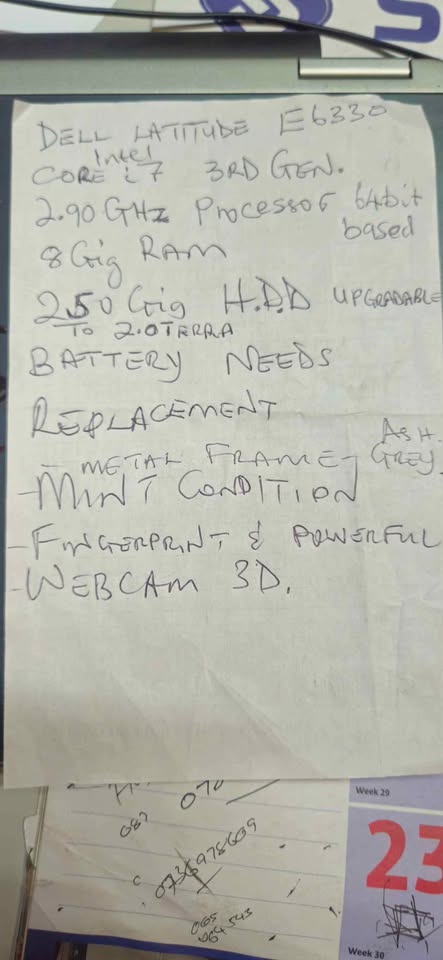 S
DELL LATITUDE E6330
CORE Intel i7 3RD GEN.
2.90 GHz Processor 64bit based
8Gig RAM
250 Gig H.D.D UPGRADABLE
TO 2.0TERRA
BATTERY NEEDS
REPLACEMENT
- METAL FRAME - ASH GREY
- MINT CONDITION
- FINGERPRINT & POWERFUL
- WEBCAM 3D.
087
0736978609
Week 29
23
Week 30